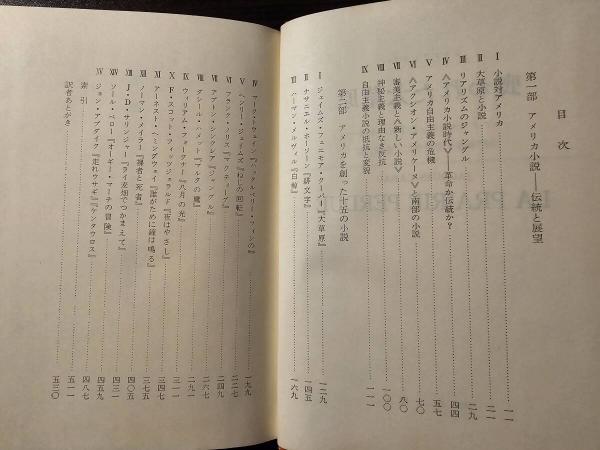 目次
第一部 アメリカ小説——伝統と展望
I 小説対アメリカ……一一
II 大草原と小説……二一
III リアリズムのジャングル……二九
IV 〈アメリカ小説時代〉——革命か伝統か?……四四
V アメリカ自由主義の危機……七〇
VI 〈アクシオン・アメリケーヌ〉と南部の小説……八〇
VII 審美主義と〈新しい小説〉
VIII 神秘主義と理由なき反抗……一〇〇
IX 自由主義小説の抵抗と変貌……一一一
第二部 アメリカを創った十五の小説
I ジェイムズ・フェニモア・クーパー『大草原』……一二九
II ナサニエル・ホーソーン『緋文字』……一四五
III ハーマン・メルヴィル『白鯨』……一六九
IV マーク・トウェイン『ハックルベリー・フィンの』……一九九
V ヘンリー・ジェイムズ『ねじの回転』
VI フランク・ノリス『マクティーグ』……二二七
VII アプトン・シンクレア『ジャングル』……二四九
VIII ダシール・ハメット『マルタの鷹』……二六七
IX ウィリアム・フォークナー『八月の光』
X F・スコット・フィッツジェラルド『夜はやさし』……三一一
XI アーネスト・ヘミングウェイ『誰がために鐘は鳴る』
XII ノーマン・メイラー『裸者と死者』……三七五
XIII J・D・サリンジャー『ライ麦畑でつかまえて』……四〇五
XIV ソール・ベロー『オーギー・マーチの冒険』……四三一
XV ジョン・アプダイク『走れウサギ』『ケンタウロス』……四五九
索引……四八七
訳者あとがき……五一一
五三〇